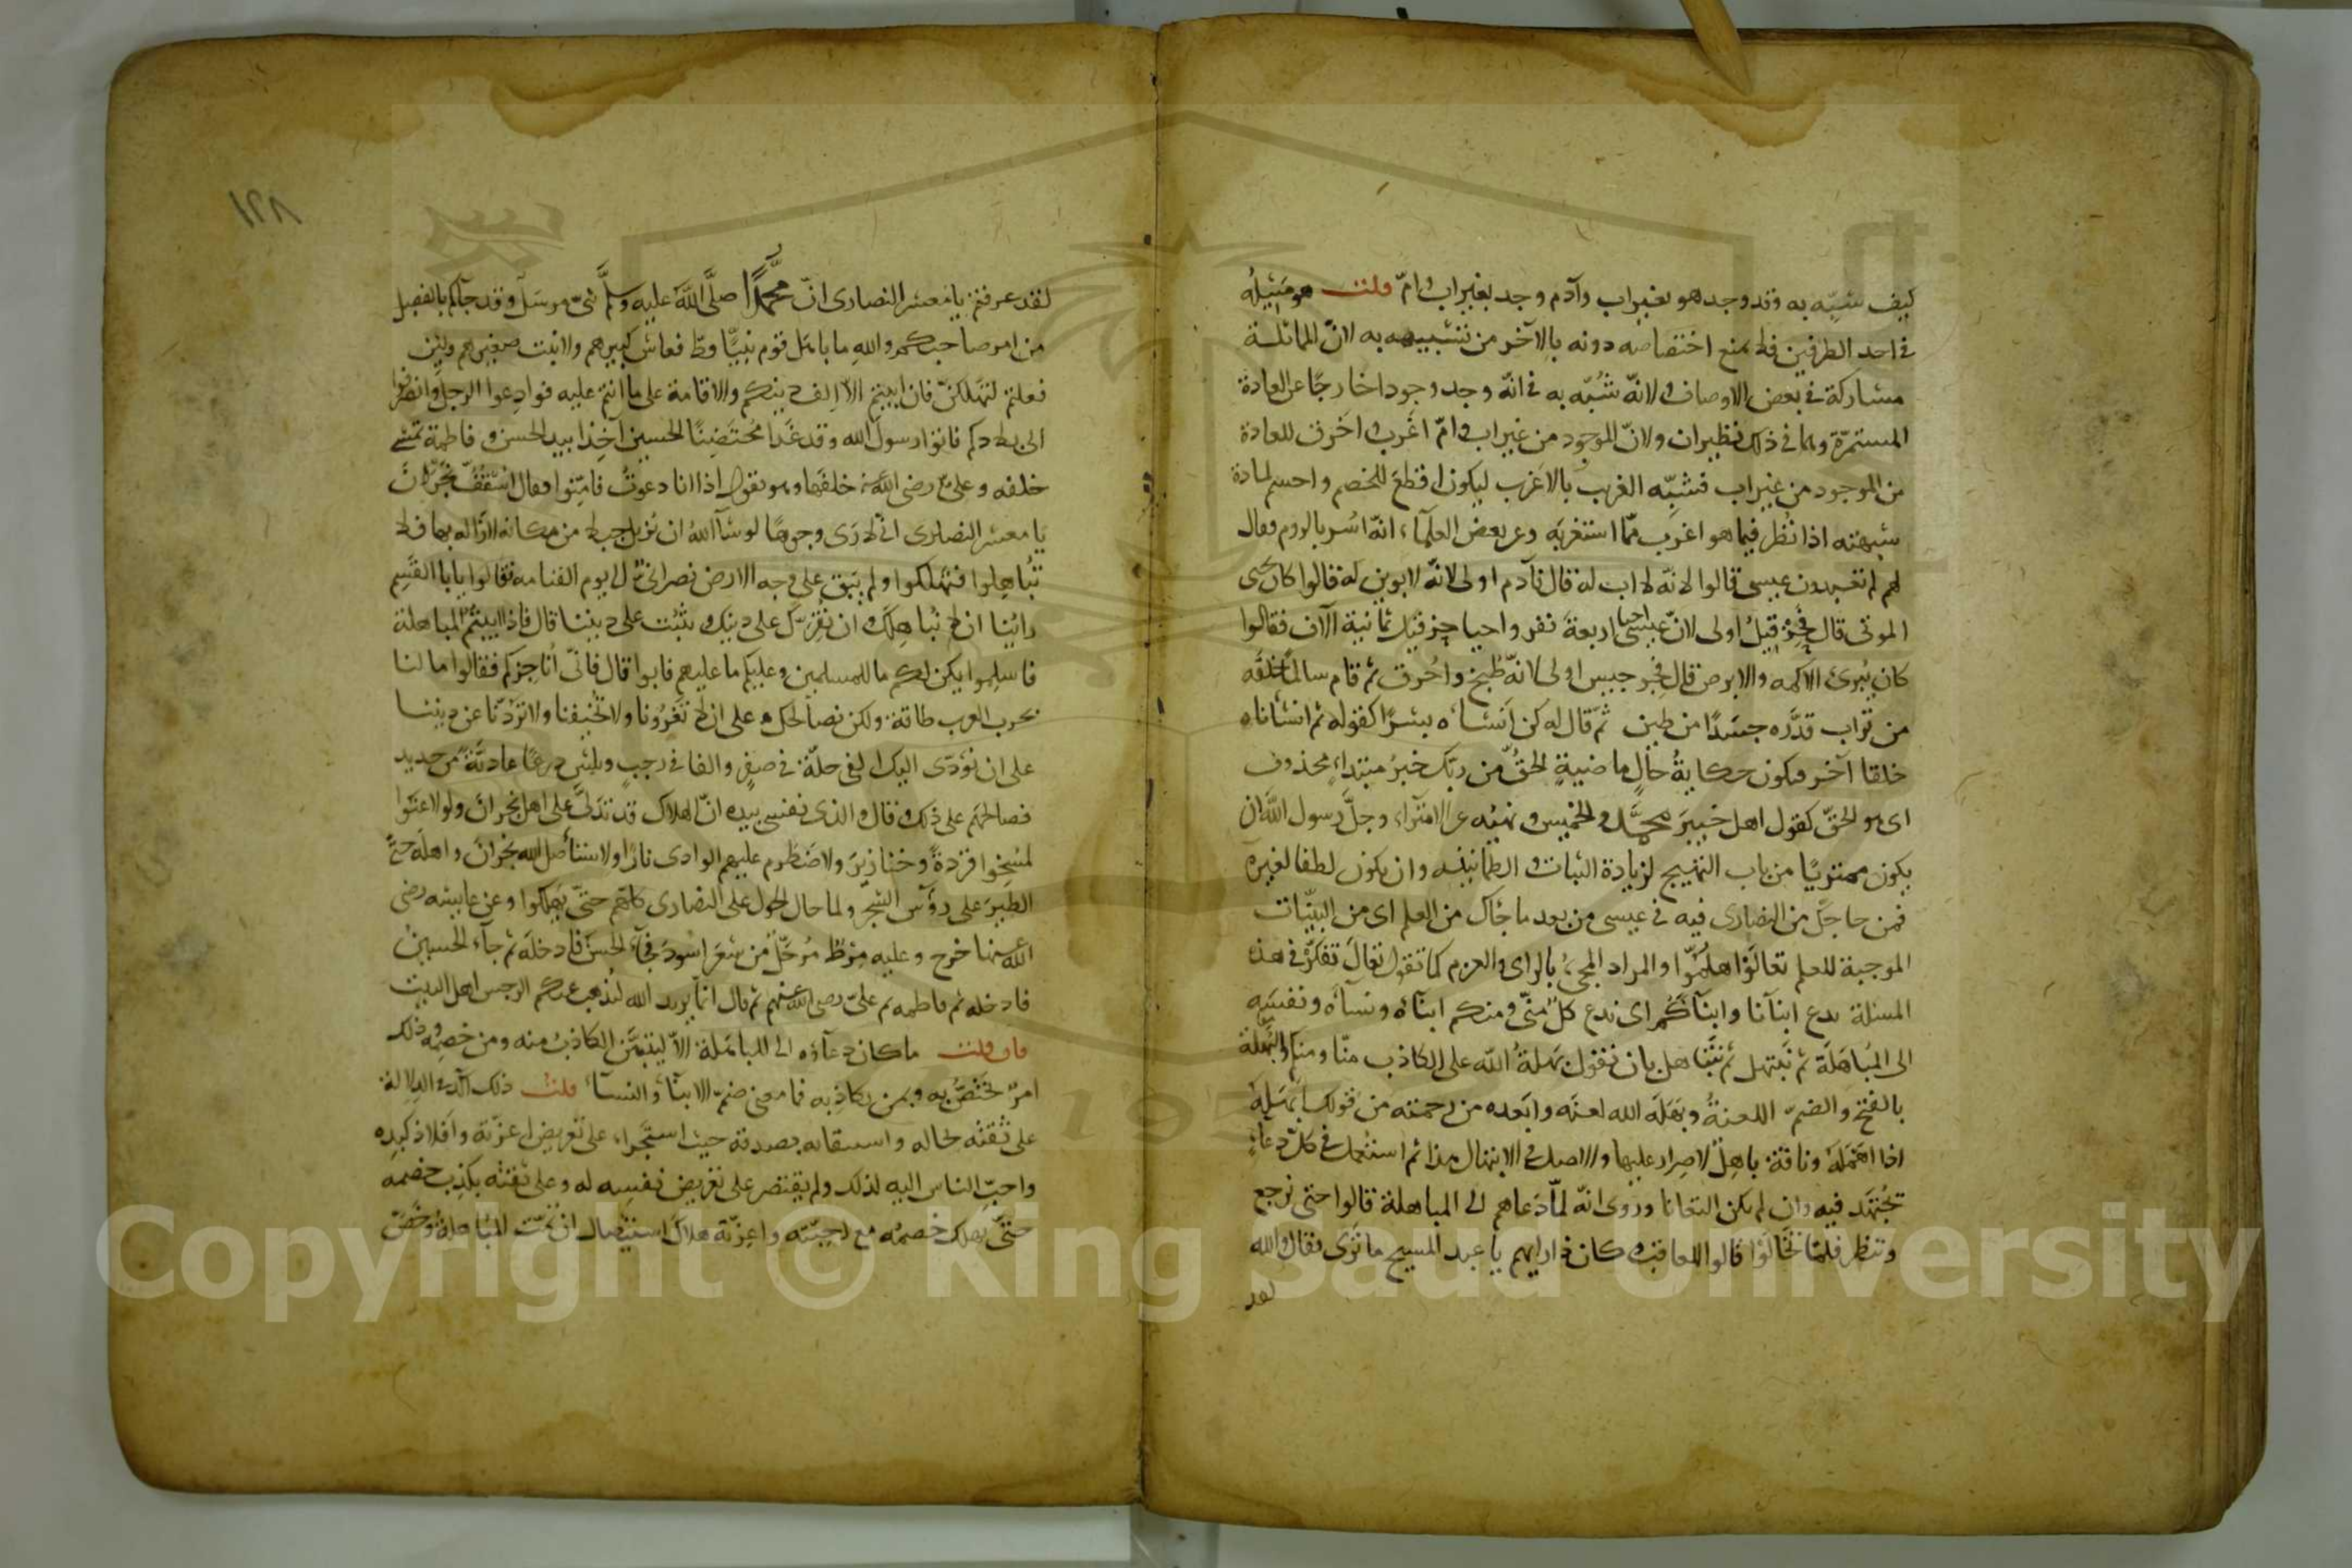 كيف شبّه به وقد وجد هو بغير اب وآدم وجد بغير اب وامّ قلت هو مثيله
في احد الطرفين فلا يمنع اختصاصه دونه بالآخر من تشبيهه به لانّ المماثلة
مشاركة في بعض الاوصاف ولانّه شُبّه به في انّه وجد وجودا خارجًا عن العادة
المستمرّة وهما في ذلك نظيران ولانّ الموجود من غير اب وامّ اغرب واخرق للعادة
من الموجود من غير اب فشبّه الغريب بالاغرب ليكون اقطع للخصم واحسم لمادة
شبهته اذا نُظر فيما هو اغرب ممّا استغربه وعن بعض العلمآء انّه اُسر بالروم فقال
لهم لم تعبدون عيسى قالوا لانّه لا اب له قال فآدم اولى لانّه لا ابوين له قالوا كان يحيى
الموتى قال فحِزْقِيلُ اولى لانّ عيسى احيا اربعة نفر واحيا حزقيل ثمانية آلاف فقالوا
كان يُبرئ الاكمه والابرص قال فجرجيس اولى لانّه طُبخ واُحرق ثم قام سالمًا خلقه
من تراب قدَّره جسَدًا من طين ثمّ قال له كن انشاه بشرًا كقوله ثم انشاناه
خلقا آخر فيكون حكايةُ حالٍ ماضيةٍ الحقُّ من ربّك خبرُ مبتداءٍ محذوف
اى هو الحقّ كقول اهل خيبر محمّد والخميس ونهيُه عن الامترآء وجلَّ رسول الله ان
يكون ممتريًا من باب التهييج لزيادة الثبات والطمانينة وان يكون لطفا لغيره
فمن حاجّك من النصارى فيه في عيسى من بعد ما جاك من العلم اى من البيّنات
الموجبة للعلم تعالَوْا هلمّوا والمراد المجئ بالراى والعزم كما تقول تعالَ تفكّرْ في هذه
المسئلة ندع ابنآنا وابنآكُم اى ندع كلٌّ منّى ومنكم ابنآه ونسآه ونفسَه
الى المُباهَلَة ثم نَبتهل ثم نتَباهل بان نقول بهلةُ الله على الكاذب منّا ومنكم والبهلة
بالفتح والضمّ اللعنةُ وبهَلَه الله لعنَه وابعده من رحمته من قولك ابهلَه
اذا اهمَلَه وناقة باهِلٌ لاصرار عليها واصل الابتهال هذا ثم استعمل في كلّ دعآء
يُجتهَد فيه وان لم يكن التعانا وروى انّه لمّا دَعاهم الى المباهلة قالوا حتى نرجع
وننظر فلمّا تخالَوْا قالوا للعاقب وكان ذا رايهم يا عبد المسيح ما ترَى فقال والله
لقد
١٢٨
لقد عرفتم يا معشر النصارى انّ محمّدًا صلَّى الله عليه وسلَّم نبيّ مرسَل وقد جآكم بالفصل
من امر صاحبكم والله ما باهل قوم نبيًّا قطّ فعاش كبيرهم ولا نبت صغيرهم ولئن
فعلتم لتهلكنّ فان ابيتم الّا اِلف دينكم والاقامة على ما انتم عليه فوادِعوا الرجل وانصرفوا
الى بلادكم فاتوا رسول الله وقد غَدا مُحتَضِنًا الحسين آخِذا بيد الحسن وفاطمة تمشى
خلفه وعلىّ رضى الله عنه خلفَها وهو يقول اذا انا دعوتُ فامّنوا فقال اُسقُفُّ نجران
يا معشر النصارى انّى لارَى وجوهًا لو شآ الله ان يُزيل جبلا من مكانه لازاله بها فلا
تُباهِلوا فتهلكوا ولم يَبق على وجه الارض نصرانىّ الى يوم القيامة فقالوا يا با القاسم
راَيْنا ان لا نُباهِلَك وان نُقرَّك على دينك ونثبُت على ديننا قال فاذا ابيتُم المباهلة
فاسلِموا يكن لكم ما للمسلمين وعليكم ما عليهم فابوا قال فانّى اُناجِزكم فقالوا ما لنا
بحرب العرب طاقة ولكن نصالحك على ان لا تغزُونا ولا تُخيفنا ولا تردّنا عن ديننا
على ان نؤدّى اليك الفى حلّة في صفرٍ والفا في رجبٍ وثلثين درعًا عاديَّةً من حديد
فصالحهَم على ذلك وقال والذى نفسى بيده انّ الهلاك قد تدَلّى على اهل نجران ولو لاعنَوا
لمُسِخوا قردةً وخنازيرَ ولاضطرم عليهم الوادى نارًا ولاستأصل الله نجرانَ واهلَه حتى
الطيرَ على رؤس الشجر ولما حال الحول على النصارى كلّهم حتّى يَهلكوا وعن عايشه رضى
الله عنها خرج وعليه مِرْطٌ مُرحَّلٌ من شعَر اسودَ فجآء الحسن فادخلَه ثم جآء الحسين
فادخله ثم فاطمه ثم علىّ رضى الله عنهم ثم قال انّما يريد الله ليُذهب عنكم الرجس اهل البيت
فان قلت ما كان دعآؤه الى المباهلة الّا ليتبيَّن الكاذبُ منه ومن خصمه وذلك
امرٌ يختصُّ به وبمن يكاذِبه فما معنى ضمّ الابنآء والنسآء قلت ذلك آكَد في الدلالة
على ثقته بحاله واستيقانه بصدقه حيث استجرَاء على تعريض اعزّته وافلاذ كبِده
واحبِّ الناس اليه لذلك ولم يقتصر على تعريض نفسِه له وعلى ثقته بكذِب خصمه
حتّى يهلك خصمُه مع احبّته واعِزّته هلاكَ استيصال ان تمّت المُباهلة وخَصَّ
Copyright © King Saud University